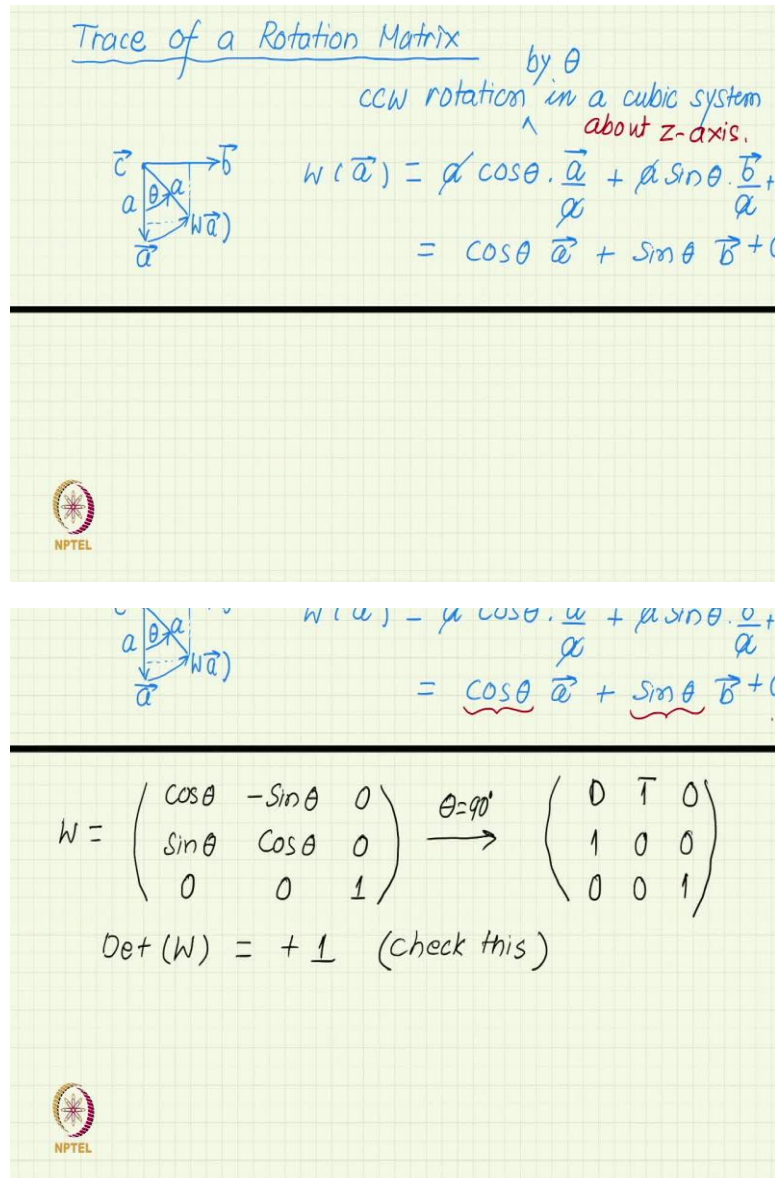 Trace of a Rotation Matrix
by θ
CCW rotation ^ in a cubic system
about z-axis.
c⃗ b⃗
a θ a
W(a⃗)
a⃗
W(a⃗) = a cosθ · a⃗/a + a sinθ · b⃗/a +
= cosθ a⃗ + sinθ b⃗ + 0
NPTEL
W(a⃗) = a cosθ · a⃗/a + a sinθ · b⃗/a +
a θ a
W(a⃗)
a⃗
= cosθ a⃗ + sinθ b⃗ + 0
W = ( cosθ -sinθ 0 ) θ=90° → ( 0 1̄ 0 )
( sinθ cosθ 0 ) ( 1 0 0 )
( 0 0 1 ) ( 0 0 1 )
Det (W) = +1 (check this)
NPTEL